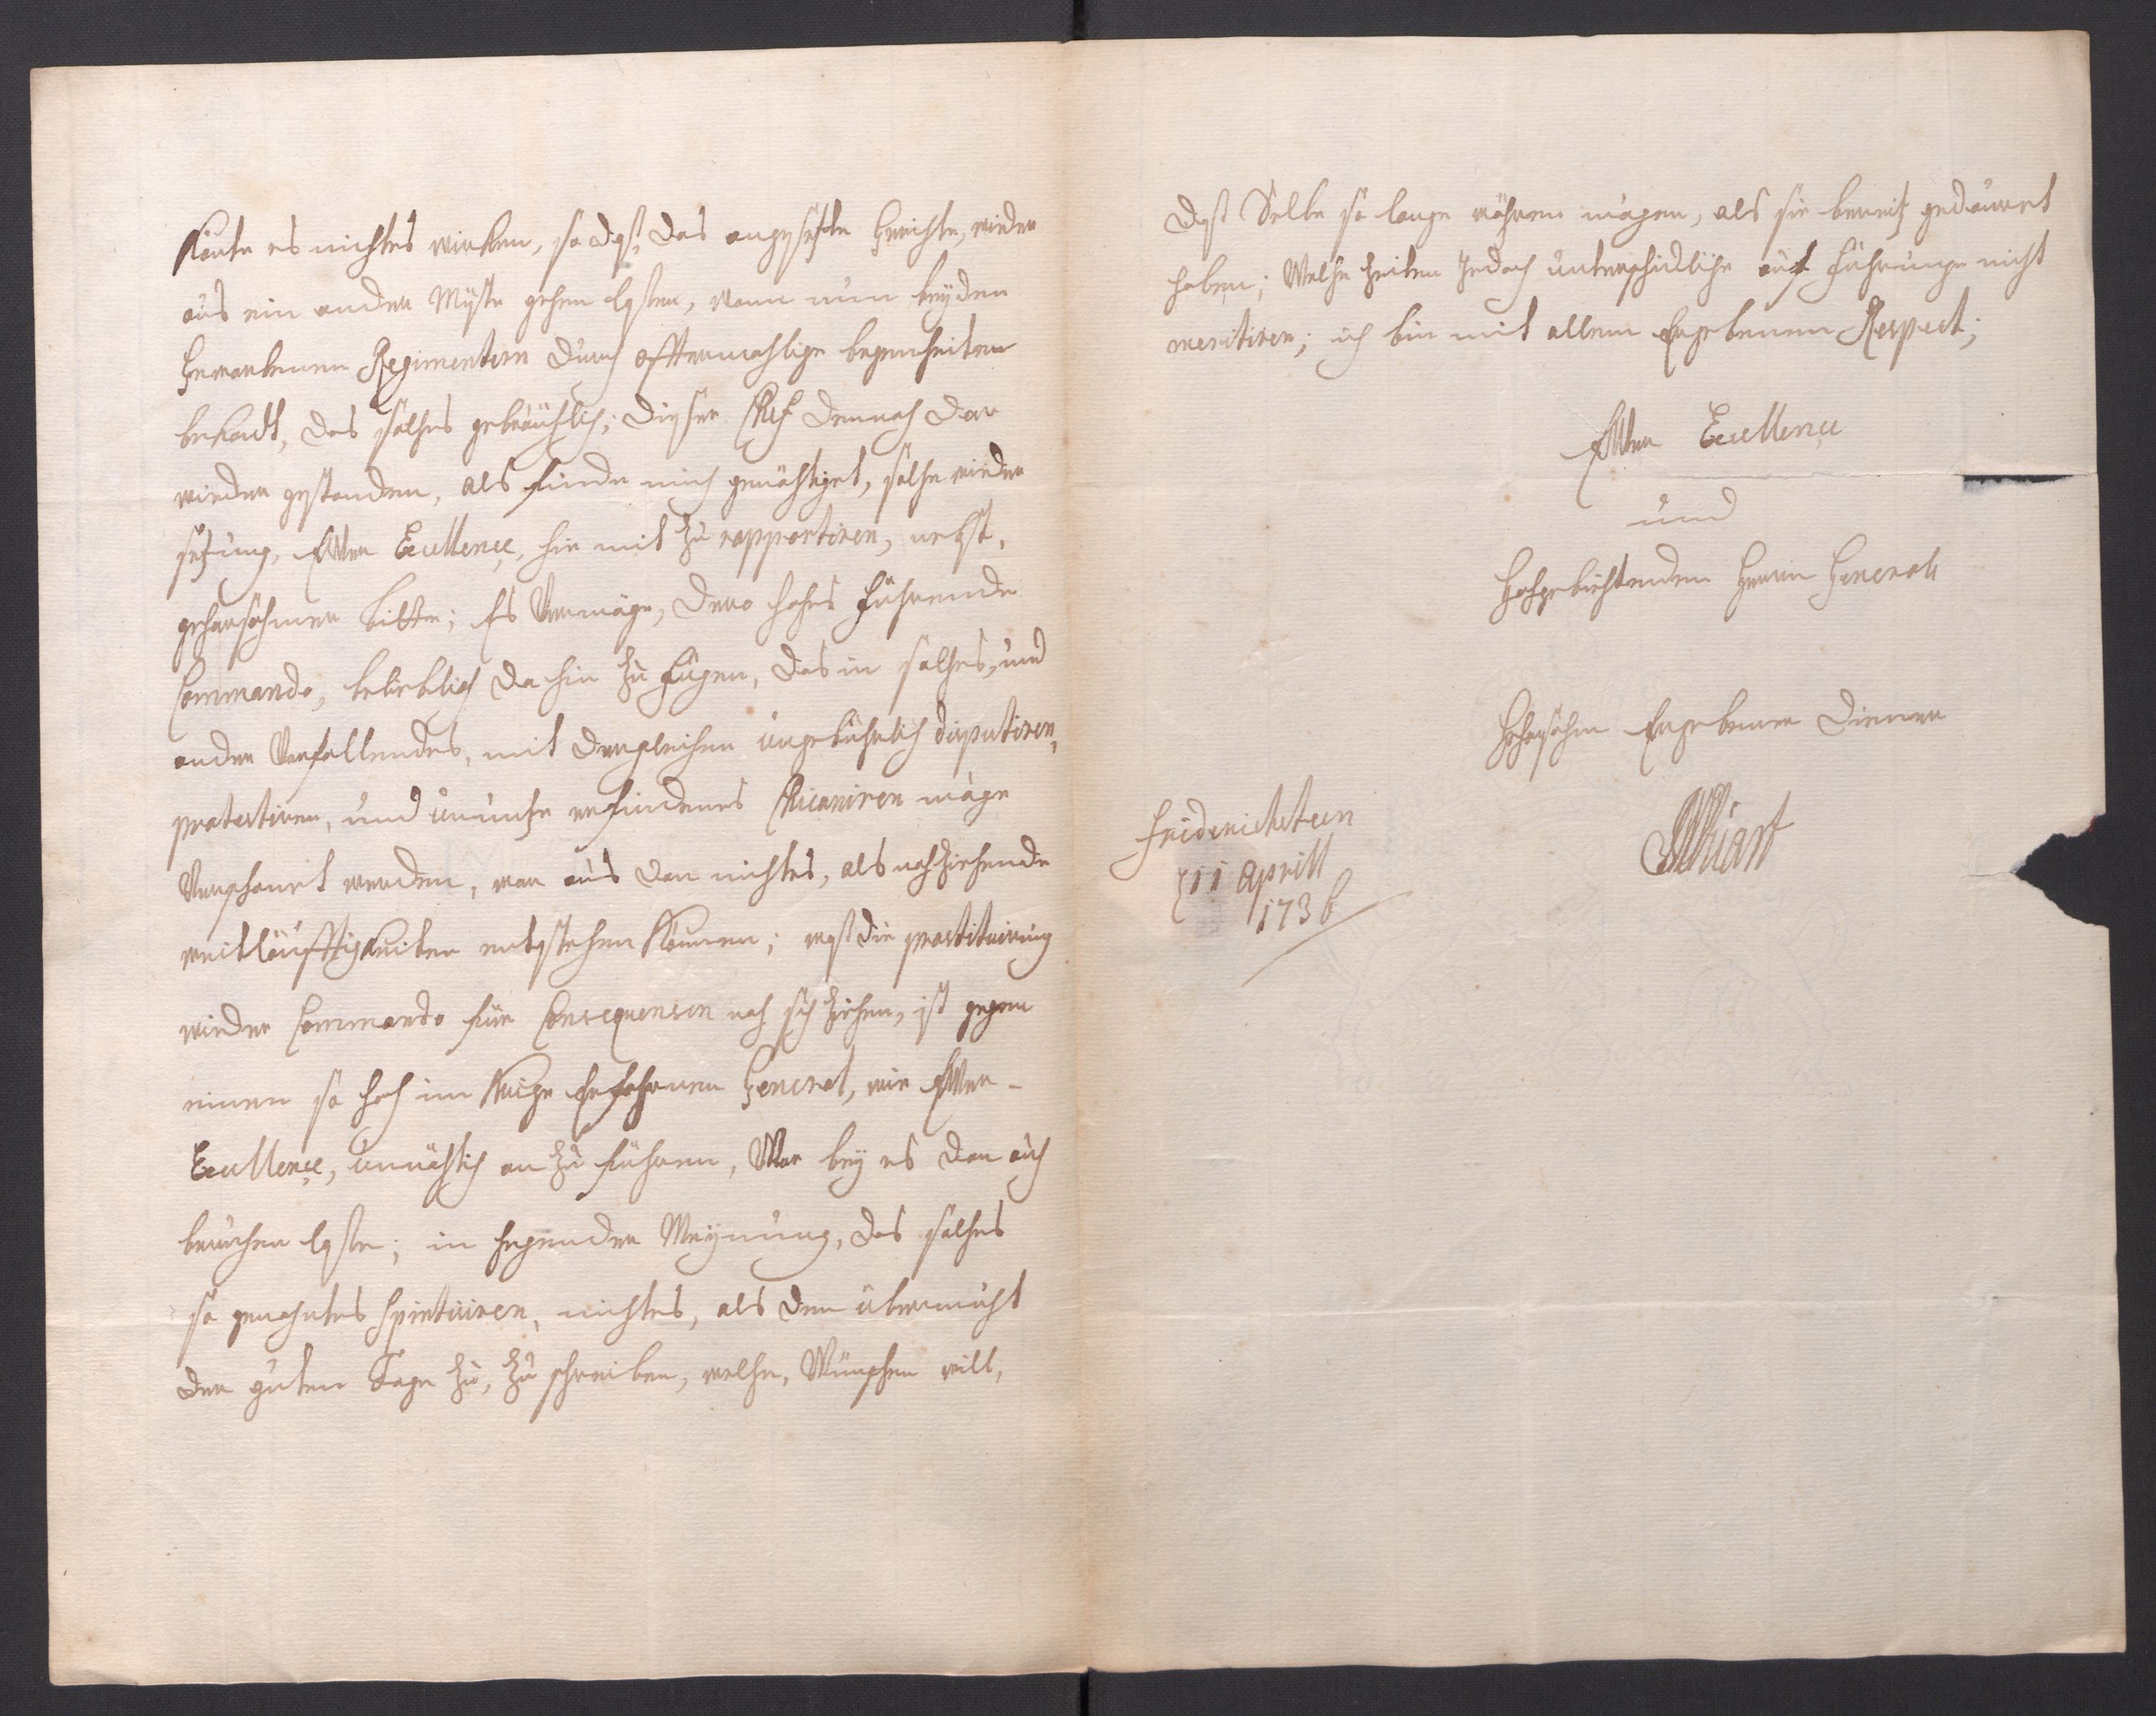 Könte es nichtes wirken, so daß, das angesetzte Gerichte, wieder
aus ein ander Müste gehen laßen, wann nun beyden
Geworbenen Regimentern durch offtermahlige begenheiten
bekandt, das solches gebräuchlich; dießer Chef dennoch dar
wieder gestanden, als finde mich genöhtiget, solche wieder
setzung, Ewer Excellence, hie mit zu rapportiren, nebst,
gehorsahmer bitte; Es Vermöge, dero hohes führende
Commando, belieblich da hin zu fügen, das in solches, und
ander Vorfallendes, mit dergleichen ungebührlich disputiren,
protestiren, und unnutze erfindenes Chicaniren möge
Verschont werden, war aus dan nichtes, als nachziehende
weitläufftigkeiten entstehen können; waß die prostituirung
wieder Commando für Consequensen nach sich ziehen, ist gegen
einen so hoch im Kriege Erfahrnen General, wie Ewer
Excellence, unnöhtig an zu führen, War bey es dan auch
beruhen laße; in hegender Meynung, das solches
so genahntes Spintuiren, nichtes, als dem übermuht
der guten Tage zu, zu schreiben, welche, Wünschen will,
daß Selbe so lange währen mögen, als sie bereitz gedauret
haben; Welche Zeiten jedoch unterschidliche auf führunge nicht
meritiren; ich bin mit allem Ergebenen Respect;
Ewer Excellence
und
Hochgebiehtenden Herrn Generals
Gehorsahm Ergebener Diener
Friderichsteen
d 11 Aprill
1736